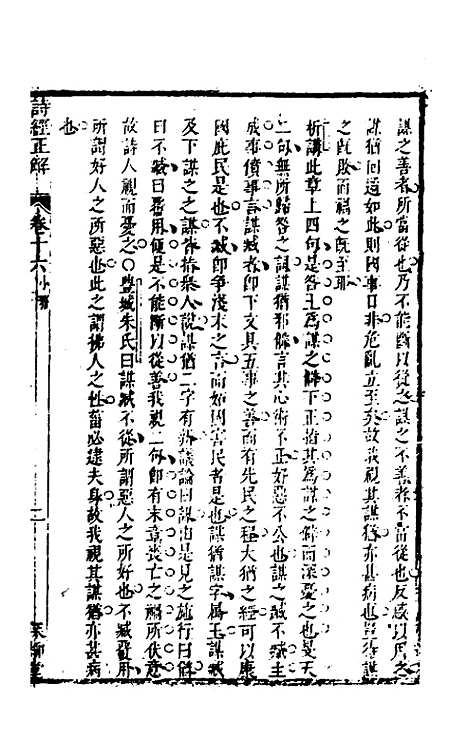 謀之善者所當從也乃不能斷以從之謀之不善者不當從也反或以用之
謀猶回遹如此則國事日非危亂立至矣故我視其謀猶亦甚病也豈待謀
之既敗而禍之既至耶
析講此章上四句是咎王為謀之僻下正指其為謀之僻而深憂之也旻天
二句無所歸咎之詞謀猶邪僻言其心術不正好惡不公也謀之臧不臧主
成事僨事言謀臧者即下文具五事之善而有先民之程大猶之經可以康
國庶民是也不臧即爭淺末之言而如因害民者是也謀猶謀字属王謀臧
及下謀之之謀皆指羣人說謀猶二字有辨議論曰謀出是見之施行曰猶
曰不臧曰覆用便是不能斷以從善我視二句即有末章喪亡之禍所伏意
故詩人覩而憂之○豐城朱氏曰謀臧不從所謂惡人之所好也不臧覆用
所謂好人之所惡也此之謂拂人之性菑必逮夫身故我視其謀猶亦甚病
也
詩經正解 卷十六小雅 二